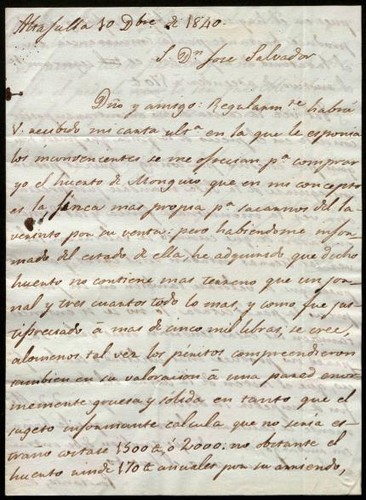 Altafulla 30 Dbre de 1840.
S. Dn Jose Salvador
Dño y amigo: Regularmte habrá
V. recibido mi carta ultª en la que le esponia
los inconvenientes se me ofrecian pª comprar
yo el huerto de Monguio que en mi concepto
es la finca mas propia pª sacarnos del la-
verinto por su venta; pero habiendome infor-
mado del estado de ella, he adquirido que dicho
huerto no contiene mas terreno que un jor-
nal y tres cuartos todo lo mas, y como fue jus-
tipreciado á mas de cinco mil libras, se cree,
alomenos tal vez los peritos comprendieron
tambien en su valoracion á una pared enor-
memente gruesa y solida en tanto que el
sugeto informante calcula que no seria es-
traño costase 1500 ₶ ó 2000: no obstante el
huerto rinde 170 ₶ anuales por su arriendo,